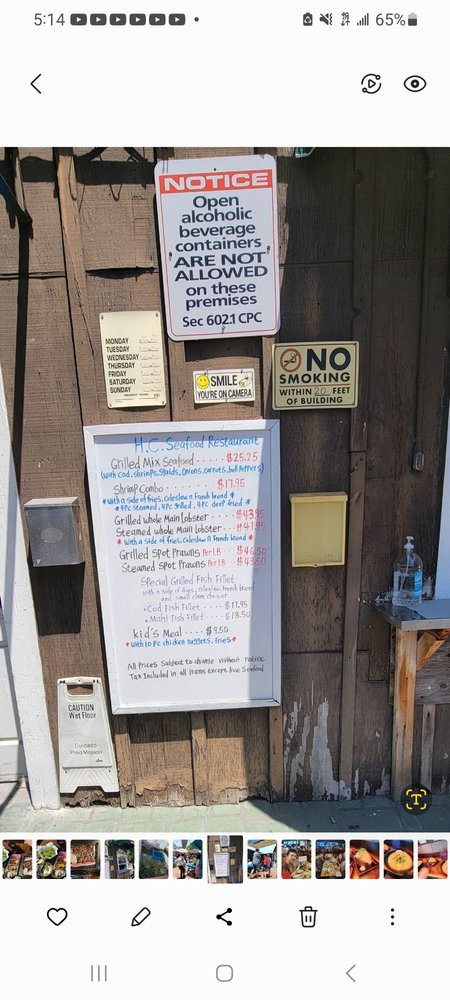 5:14
65%
NOTICE
Open
alcoholic
beverage
containers
ARE NOT
ALLOWED
on these
premises
Sec 602.1 CPC
MONDAY
TUESDAY
WEDNESDAY
THURSDAY
FRIDAY
SATURDAY
SUNDAY
SMILE
YOU'RE ON CAMERA
NO
SMOKING
WITHIN 20 FEET
OF BUILDING
H.C. Seafood Restaurant
Grilled Mix Seafood ..... $25.25
(with cod, shrimps, squids, onions, carrots, bell peppers)
Shrimp Combo ..... $17.95
*with a side of fries, coleslaw n french bread*
*4pc steamed, 4pc grilled, 4pc deep fried*
Grilled whole Main Lobster .... $43.95
Steamed whole Main Lobster ... $41.95
*with a side of fries, coleslaw n french bread*
Grilled Spot Prawns Per LB ... $46.50
Steamed Spot Prawns Per LB ... $43.50
Special Grilled Fish Fillet
with a side of fries, coleslaw, french bread
and small clam chowder
• Cod Fish Fillet ... $17.95
• Mahi Fish Fillet ... $18.50
kid's Meal .... $9.50
*with 10 pc chicken nuggets, fries*
All Prices Subject to change without notice
Tax Included in all items Except live Seafood
CAUTION
Wet Floor
Cuidado
Piso Mojado
T